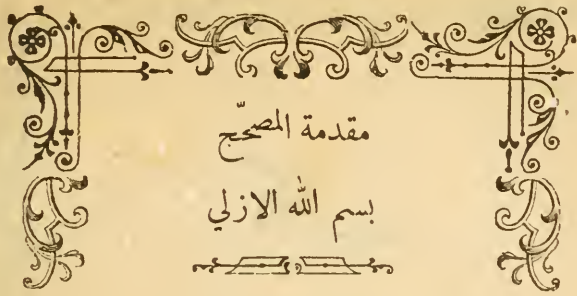 مقدمة المصحّح
بسم الله الازلي